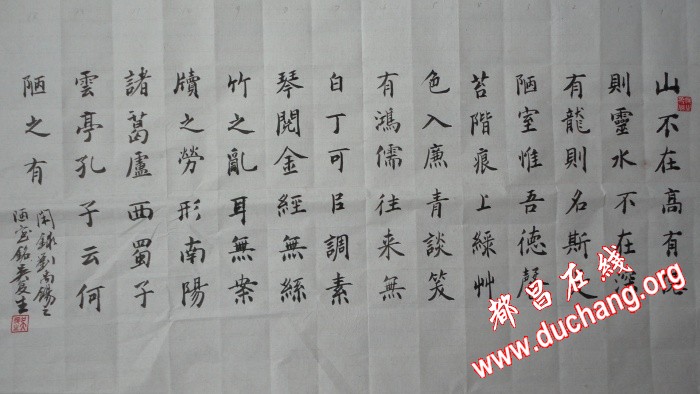 山不在高有
則靈水不在深
有龍則名斯
陋室惟吾德馨
苔階痕上綠艸
色入廉青談笑
有鴻儒往来無
白丁可㠯調素
琴閱金經無絲
竹之亂耳無案
牘之勞形南陽
諸葛廬西蜀子
雲亭孔子云何
陋之有
閑録劉禹錫之
陋室銘
都昌在线
www.duchang.org